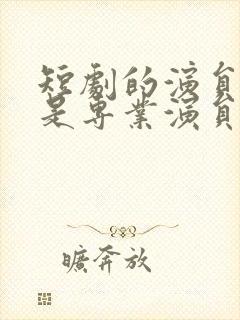 短劇的演員
是專業演員
曠奔放